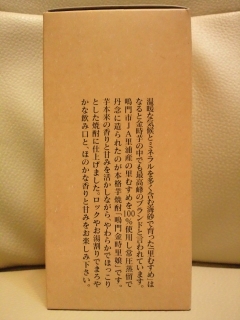 温暖な気候とミネラルを多く含む海砂で育った「里むすめ」は
なると金時芋の中でも最高峰のブランドと言われています。
鳴門市JA里浦産の里むすめを100%使用し常圧蒸留で
丹念に造られたのが本格芋焼酎「鳴門金時里娘」です。
芋本来の香りと甘みを活かしながら、やわらかでほっこり
とした焼酎に仕上げました。ロックやお湯割りでまろや
かな飲み口と、ほのかな香りと甘みをお楽しみ下さい。